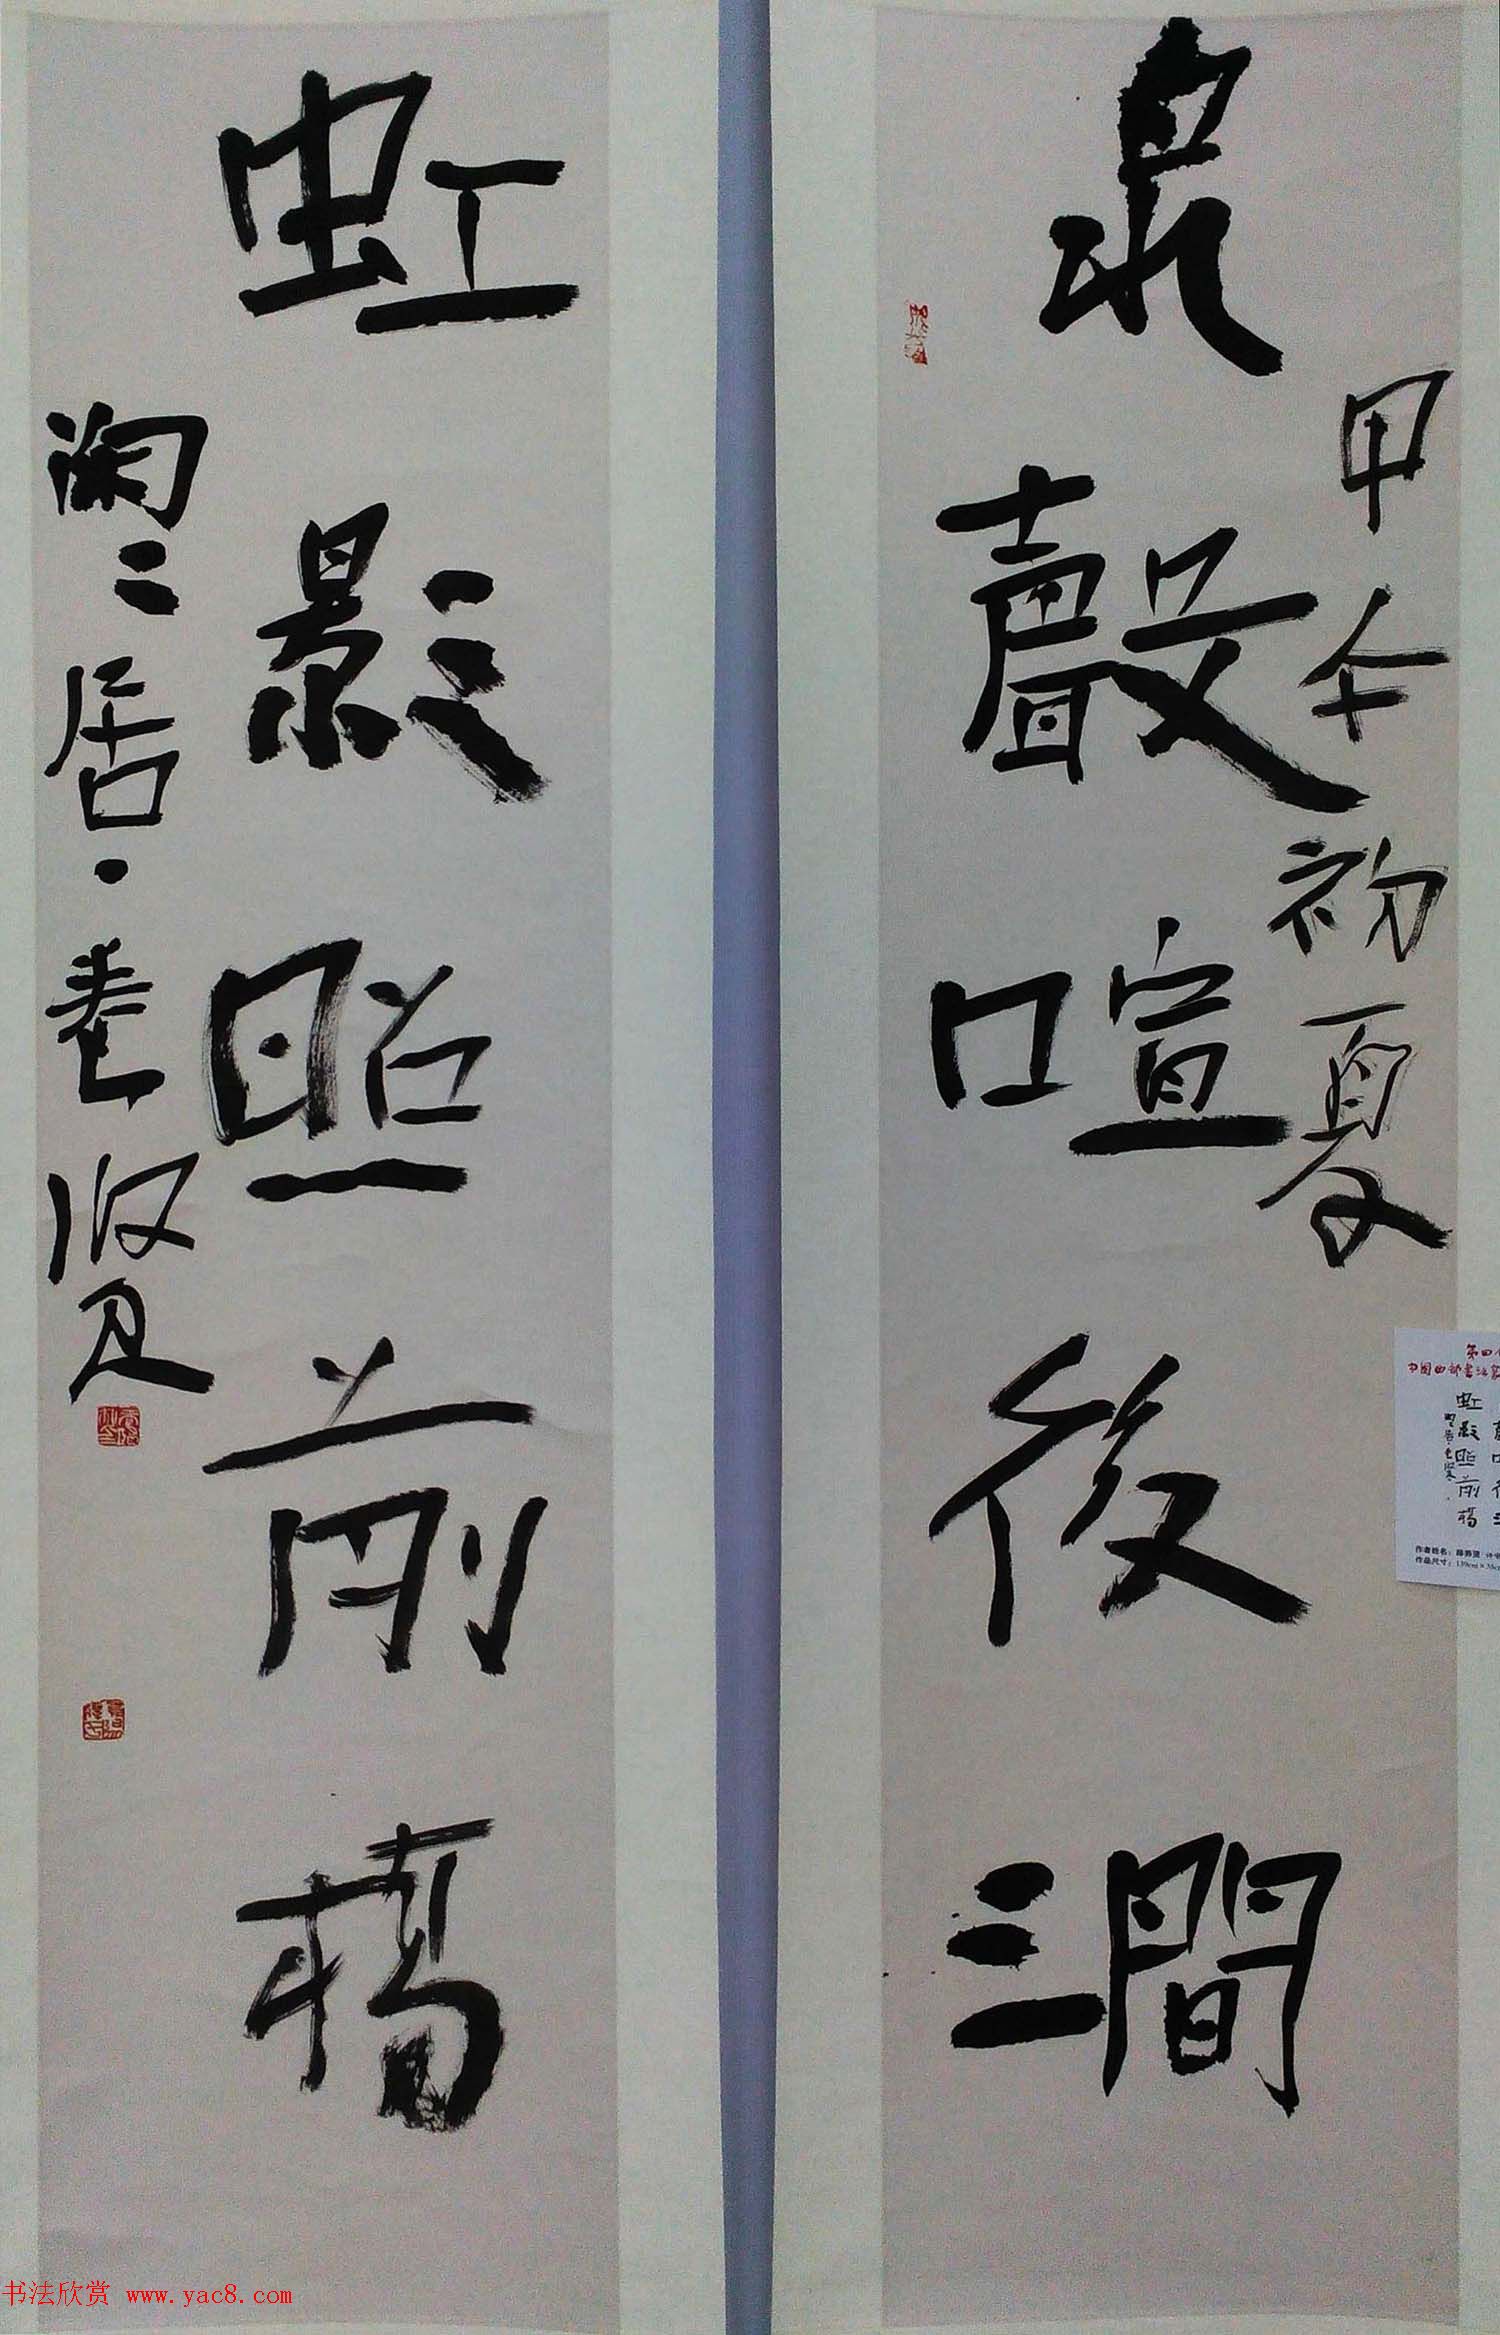 泉聲喧後澗
甲午初夏
虹影照前橋
居·養賢
第四
中国西部书法篆
虹
影
照
前
橋
作者姓名：
作品尺寸：139cm×
书法欣赏 www.yac8.com